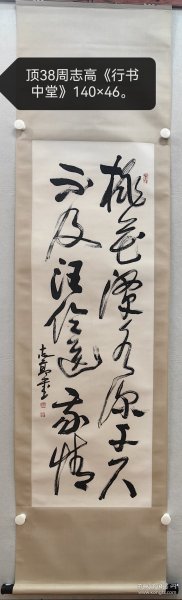 顶38周志高《行书
中堂》140×46。
桃花潭水深千尺
不及汪伦送我情
志高书